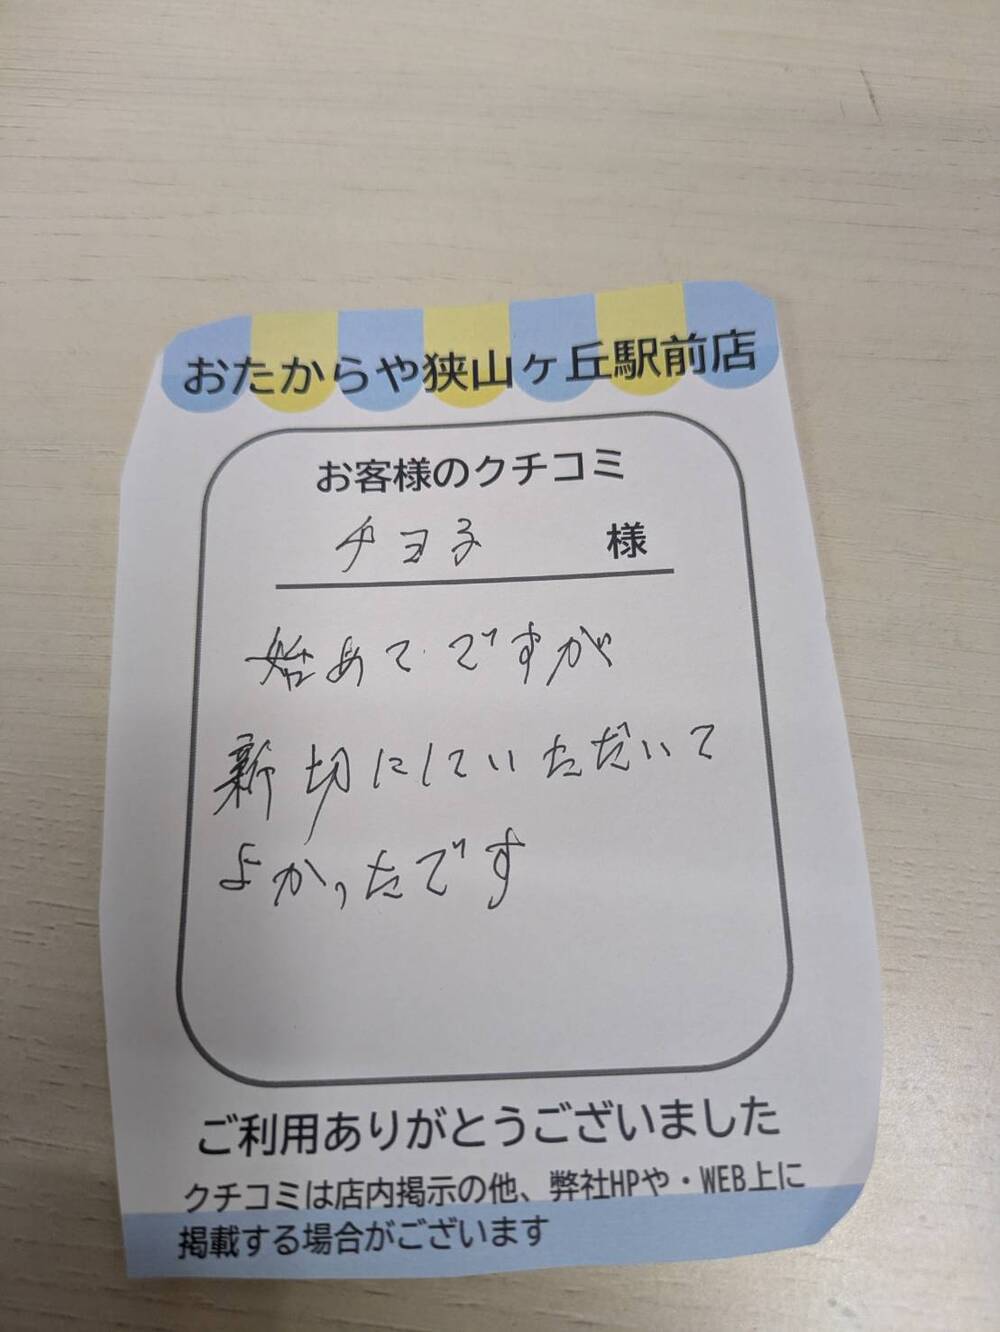 おたからや狭山ヶ丘駅前店
お客様のクチコミ
チヨ子 様
始めてですが
新切にしていいただいて
よかったです
ご利用ありがとうございました
クチコミは店内掲示の他、弊社HPや・WEB上に
掲載する場合がございます